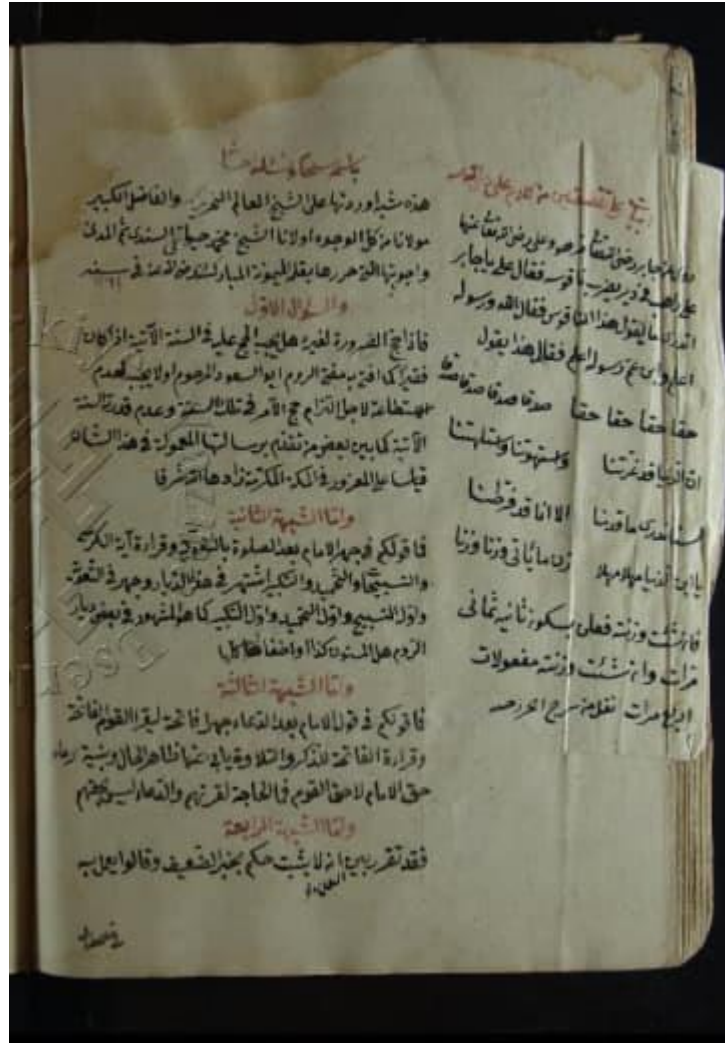 هذه شبه اوردتها على الشيخ العالم النحرير والفاضل الكبير
مولانا من كل الوجوه اولانا الشيخ محمد حياتي السندى ثم المدنى
واجوبتها التى حررها بقلم الميمونة المبارك فى سنه
والسؤال الاول
فاذا حج الضرورة لغيره هل يجب الحج عليه فى السنة الآتية اذا كان
فقيرا كما افتى به مفتى الروم ابو السعود المرحوم اولا يجب لعدم
الاستطاعة لاجل التزام حج الآمر فى تلك السنة وعدم قدرة السنة
الآتية كما بين لبعض من تقدم برسالتها المعمولة فى هذا الشأن
فى المكة المكرمة زادها الله شرفا
واما الشبهة الثانية
فما قولكم فى جهر الامام بعد الصلوة وقراءة آية الكرسى
والتسبيح والتحميد والتكبير اشتهر فى هذه الديار وجهر فى التعوذ
واول التسبيح واول التحميد واول التكبير كما هو المشهور فى بعض ديار
الروم هل المسنون كذا او اخفائها كلها
واما الشبهة الثالثة
فما قولكم فى قول الامام بعد الدعاء جهرا فاتحة ليقرأ القوم الفاتحة
وقراءة الفاتحة للذكر والتلاوة ظاهر الحال
حق الامام لاحق القوم فى الحاجة والدعاء
واما الشبهة الرابعة
فقد تقرر بين انه لا يثبت حكم بخبر الضعيف وقالوا يعمل به
العلماء
جابر رضى الله تعالى عنه وعلى رضى الله تعالى عنهما
على راهب فى دير يضرب ناقوس فقال على يا جابر
اتدرى ما يقول هذا الناقوس فقال الله ورسوله
اعلم وابن عم رسوله اعلم فقال هذا يقول
حقا حقا حقا حقا صدقا صدقا صدقا صدقا
ان الدنيا قد غرتنا واستهوتنا واستلهتنا
لسنا ندرى ما قدمنا الا انا قد فرطنا
يا ابن الدنيا مهلا مهلا زن ما يأتى وزنا وزنا
فان شئت وزنته فعلن بسكون ثانيه ثمانى
مرات وان شئت وزنته مفعولات
اربع مرات نقل من شرح